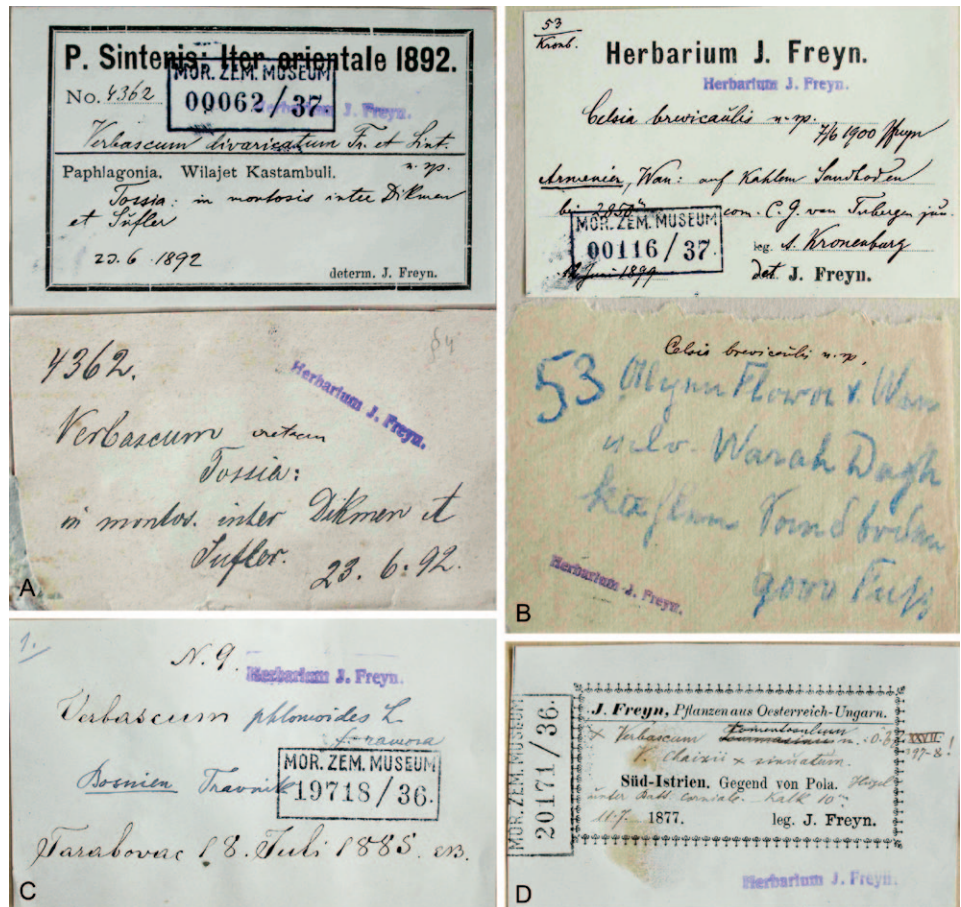 P. Sintenis: Iter orientale 1892.
MOR. ZEM. MUSEUM
00062/37.
No. 4362
Herbarium J. Freyn.
Verbascum divaricatum Fr. et Sint.
n. sp.
Paphlagonia. Wilajet Kastambuli.
Tossia: in montosis inter Dikmen
et Sufler
23.6.1892
determ. J. Freyn.
4362.
Herbarium J. Freyn.
Verbascum
Tossia:
in montos. inter Dikmen et
Sufler.
23.6.92.
A
53
Kronb.
Herbarium J. Freyn.
Herbarium J. Freyn.
Celsia brevicaulis n. sp.
7/6 1900 Freyn
Armenien, Wan: auf kahlem Sandboden
com. C. G. van Tubergen jun.
MOR. ZEM. MUSEUM
00116/37.
leg. A. Kronenburg
Juni 1899
det. J. Freyn.
Celsia brevicaulis n. sp.
53 Alpen Flora v. Wan
Warak Dagh
Herbarium J. Freyn.
B
1.
N. 9.
Herbarium J. Freyn.
Verbascum phlomoides L.
f. ramosa
Bosnien Travnik
MOR. ZEM. MUSEUM
19718/36.
Tarabovac 18. Juli 1885.
C
MOR. ZEM. MUSEUM
20171/36.
J. Freyn, Pflanzen aus Oesterreich-Ungarn.
× Verbascum
V. Chaixii × sinuatum.
Süd-Istrien. Gegend von Pola. Hügel
unter Batt. Corniale. Kalk 10
11.7. 1877. leg. J. Freyn.
Herbarium J. Freyn.
D